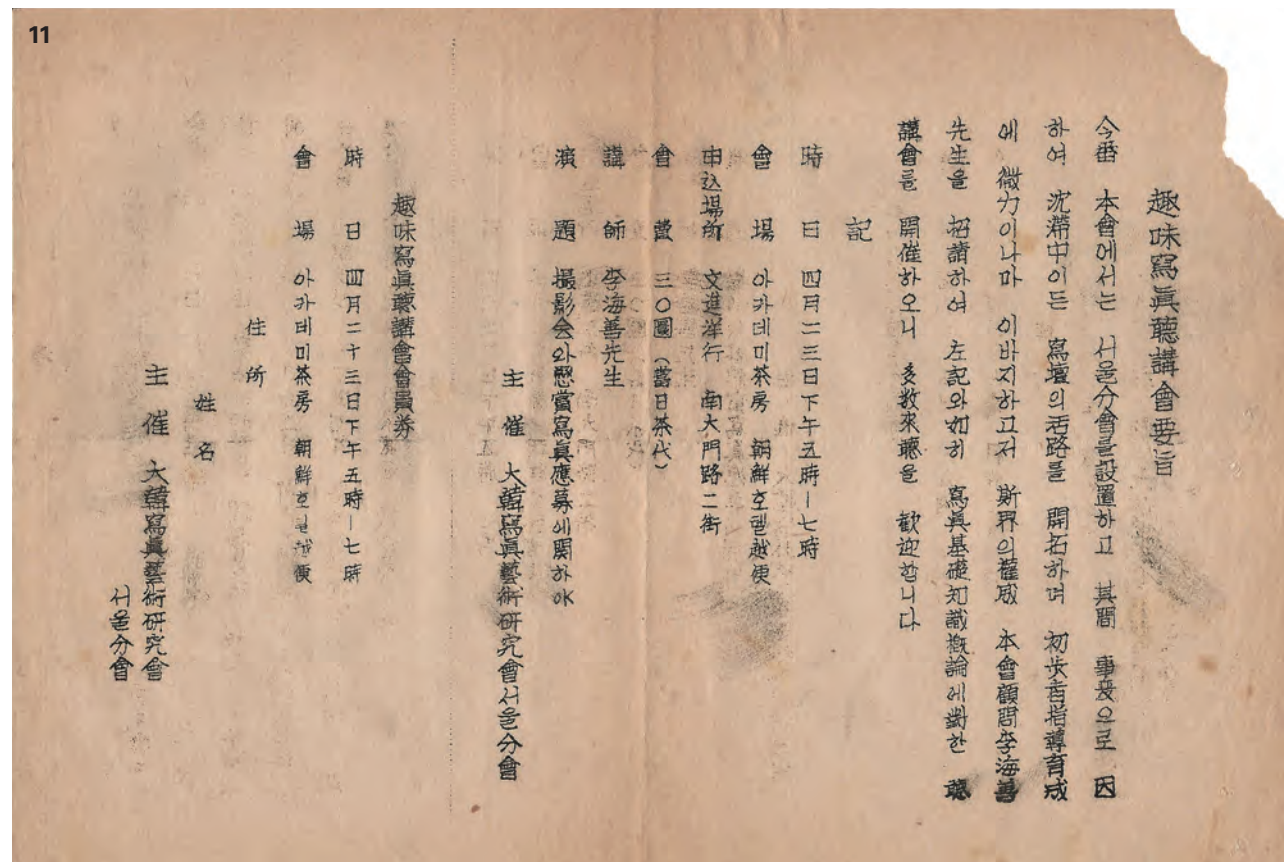 11
趣味寫眞聽講會要旨
今番 本會에서는 서울分會를設置하고 其間 事變으로 因
하여 沈滯中이든 寫壇의活路를 開拓하며 初步者指導育成
에 微力이나마 이바지하고저 斯界의權威 本會顧問李海善
先生을 招請하여 左記와如히 寫眞基礎知識槪論에對한 聽
講會를 開催하오니 多數來聽을 歡迎합니다
記
時 日 四月二三日下午五時—七時
會 場 아카데미茶房 朝鮮호텔越便
申込場所 文進洋行 南大門路二街
會 費 三〇圓 (當日茶代)
講 師 李海善先生
演 題 撮影会와懸賞寫眞應募에関하야
主 催 大韓寫眞藝術研究會서울分會
趣味寫眞聽講會會員券
時 日 四月二十三日下午五時—七時
會 場 아카데미茶房 朝鮮호텔越便
住 所
姓 名
主 催 大韓寫眞藝術研究會
서울分會